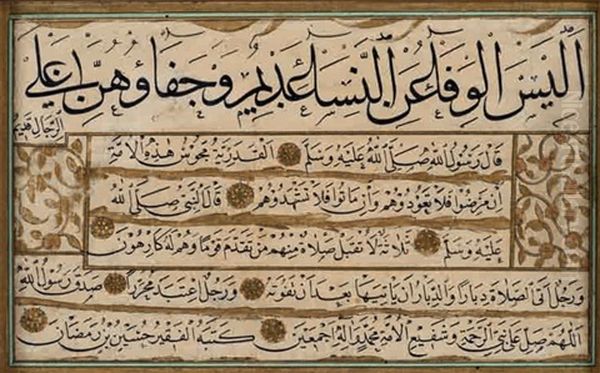 أليس الوفاء عن النساء عديم وجفاؤهن على
الرجال قديم
قال رسول الله صلى الله عليه وسلم القدرية مجوس هذه الأمة
إن مرضوا فلا تعودوهم وإن ماتوا فلا تشهدوهم قال النبي صلى الله
عليه وسلم ثلاثة لا تقبل صلاة منهم من تقدم قوما وهم له كارهون
ورجل أتى الصلاة دبارا والدبار أن يأتيها بعد أن تفوته ورجل اعتبد محررا صدق رسول الله
اللهم صل على نبي الرحمة وشفيع الأمة محمد وآله أجمعين كتبه الفقير حسين بن رمضان